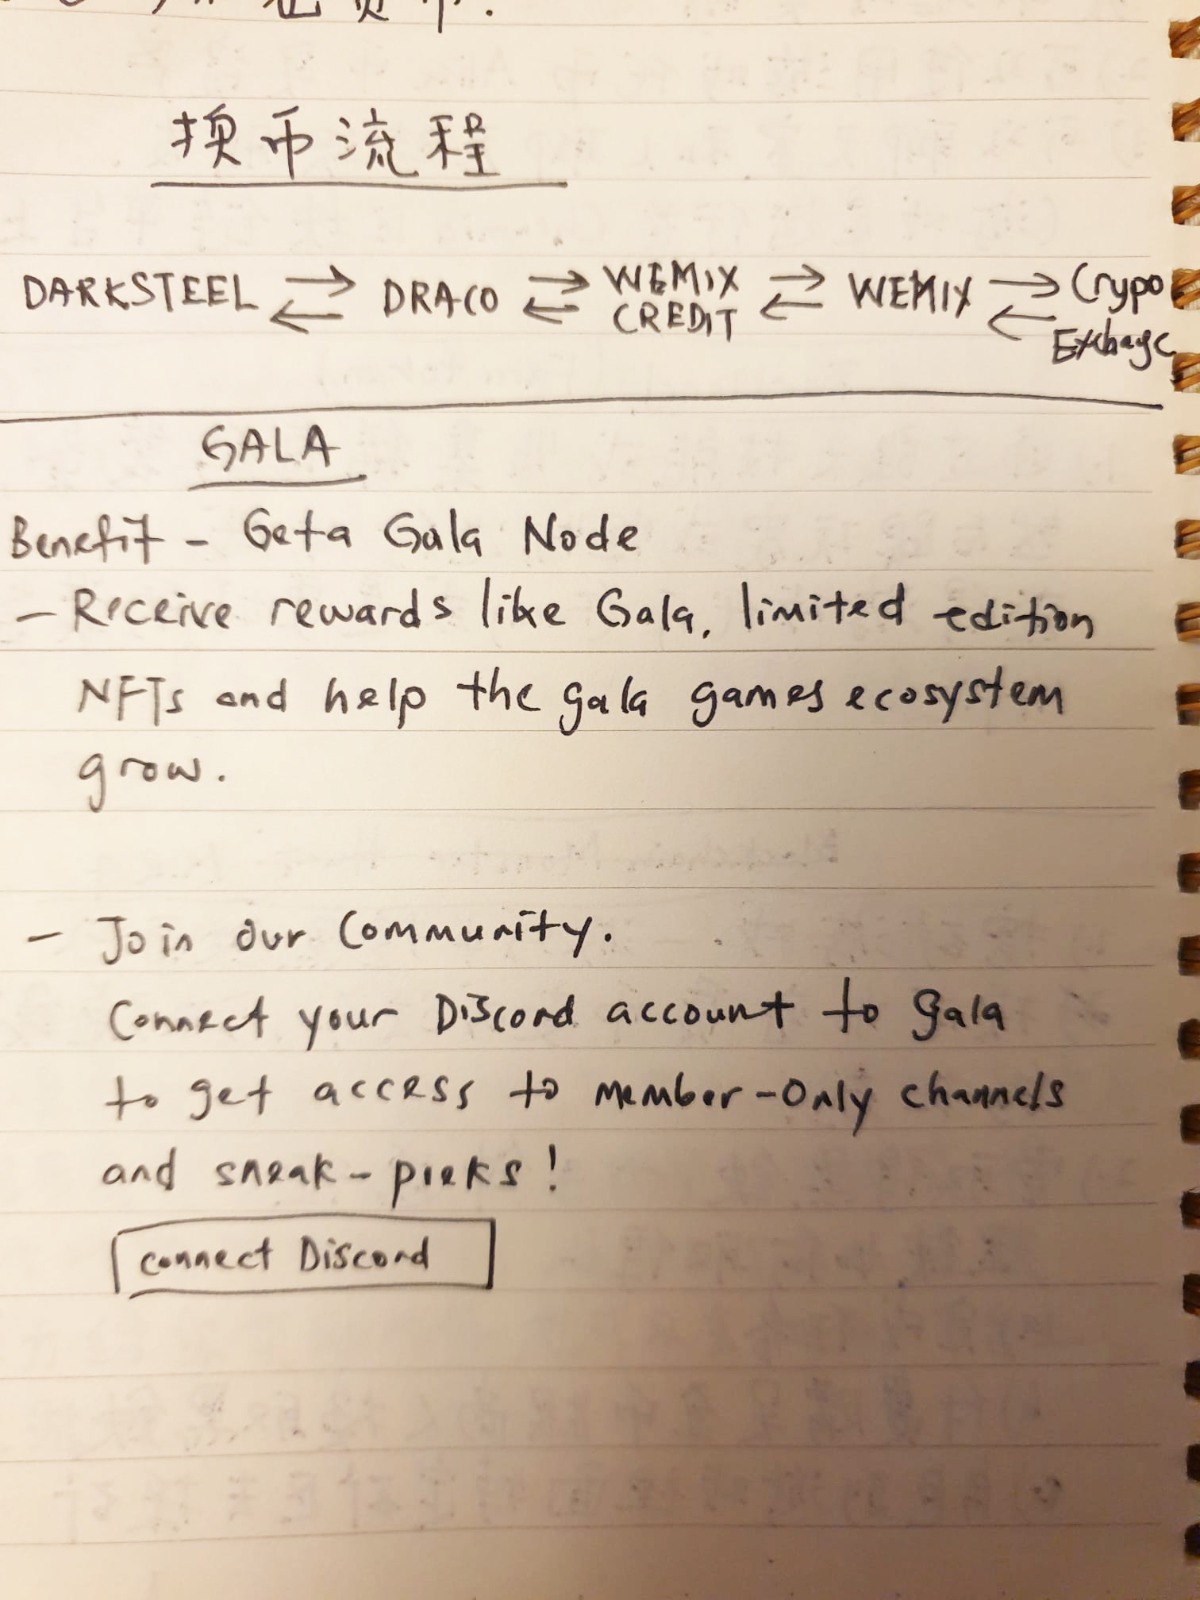 换币流程
DARKSTEEL ⇄ DRACO ⇄ WEMIX CREDIT ⇄ WEMIX ⇄ Crypo Exchage
GALA
Benefit - Get a Gala Node
- Receive rewards like Gala, limited edition
NFTs and help the gala games ecosystem
grow.
- Join our Community.
Connect your Discord account to gala
to get access to member-only channels
and sneak-pieks!
connect Discord